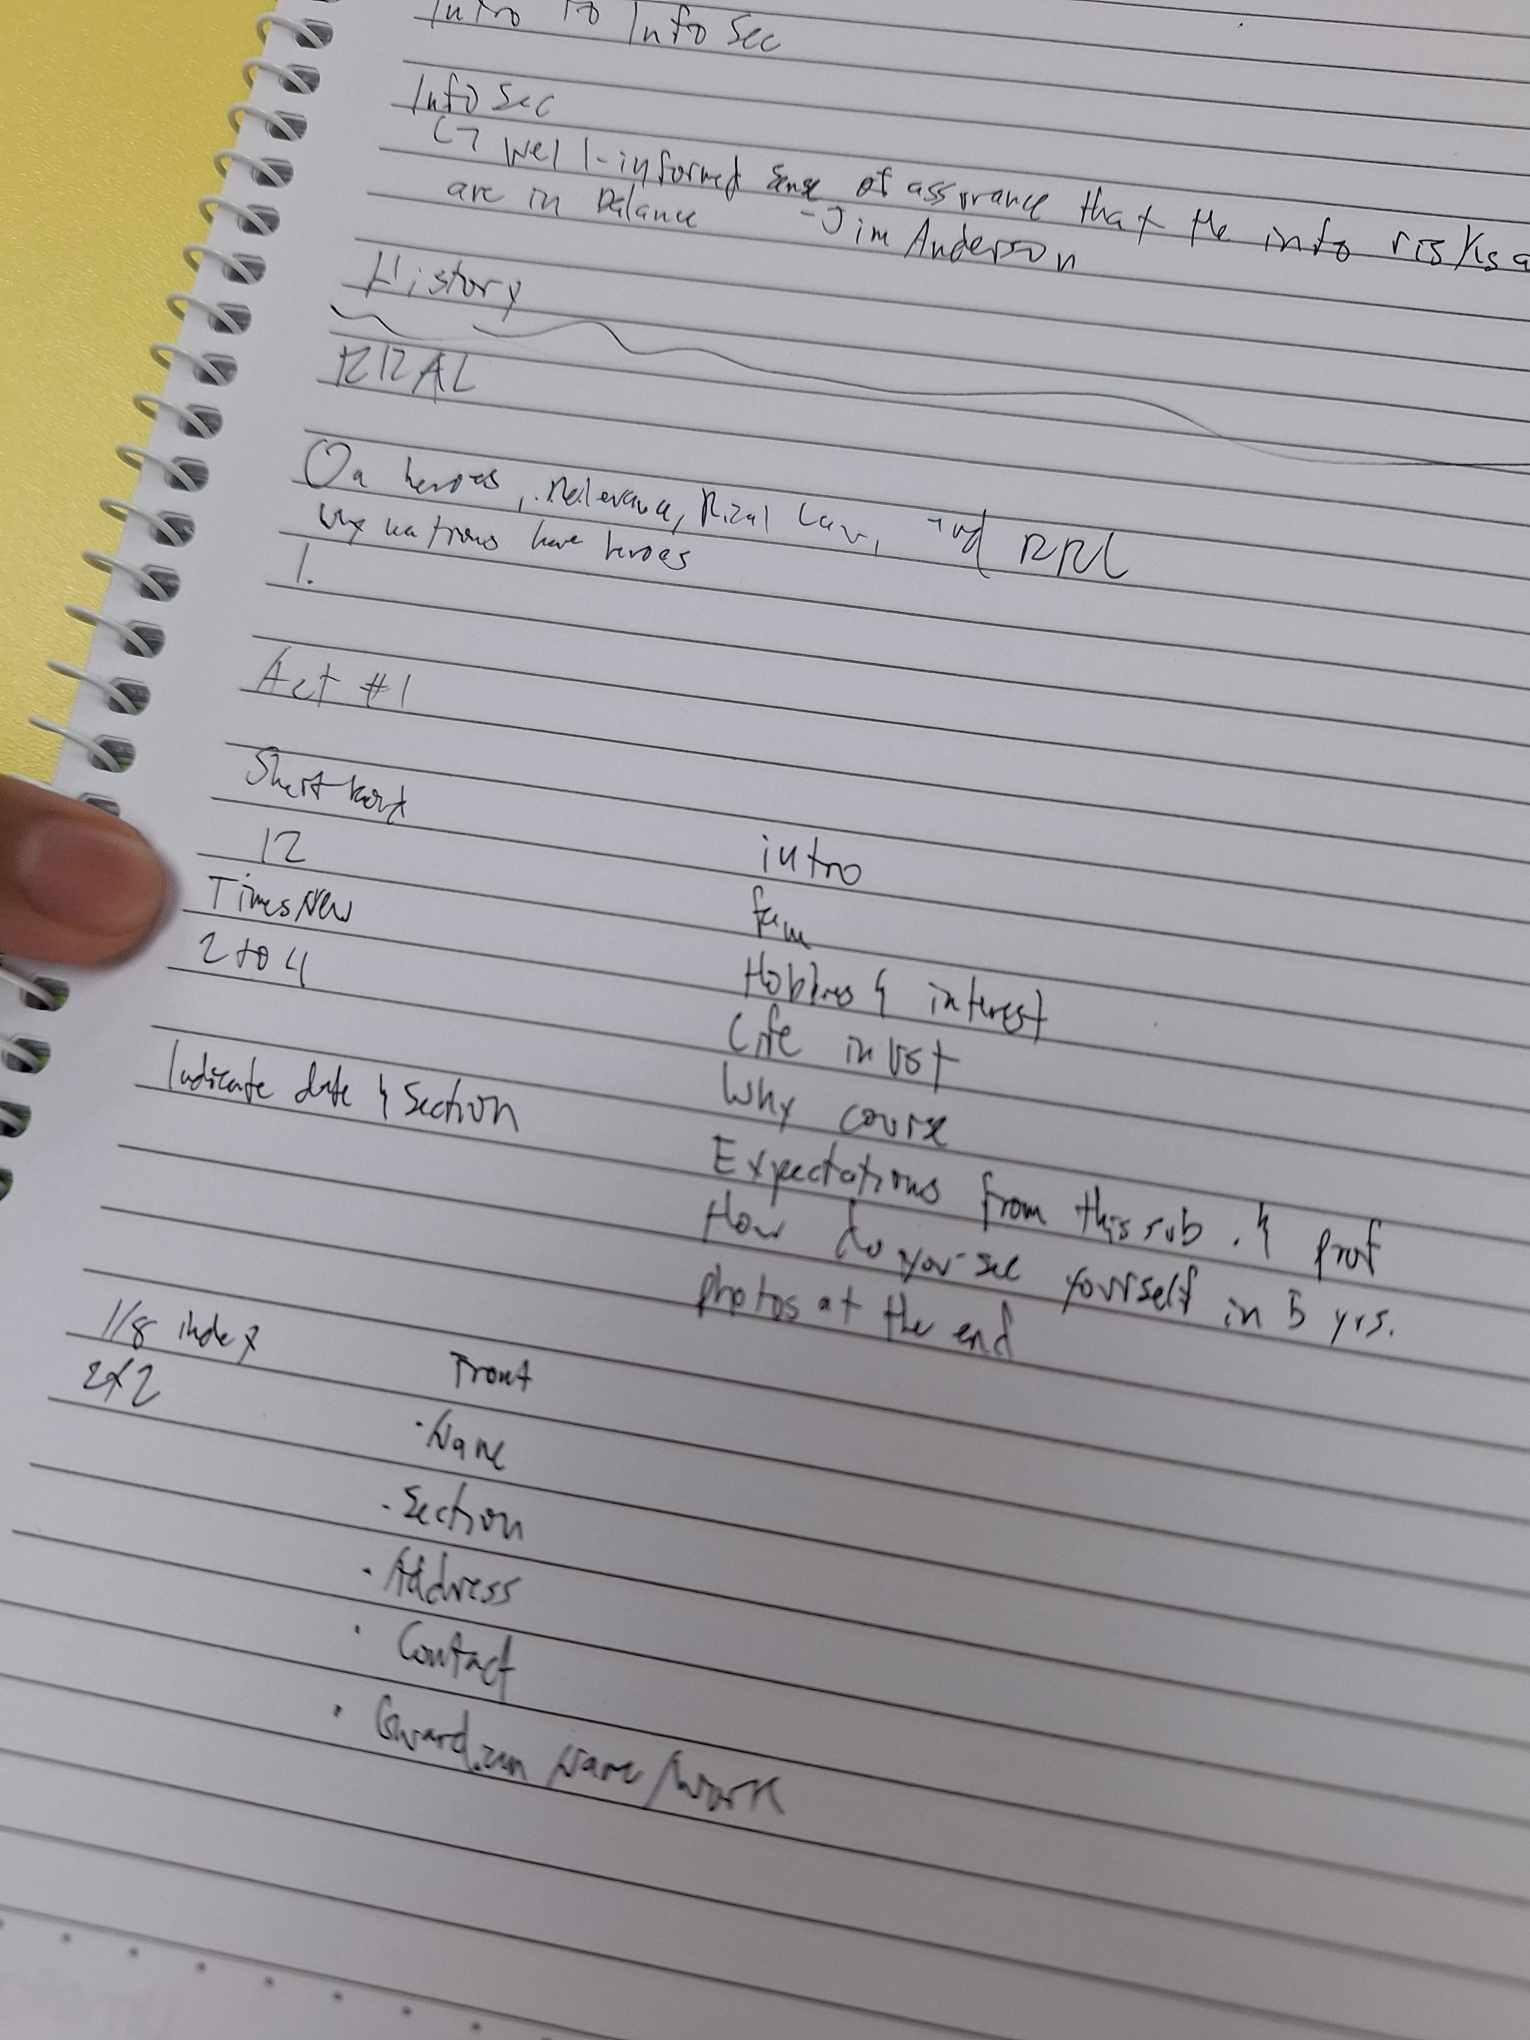 Intro to Info Sec
Info Sec
↳ Well-informed sense of assurance that the info risks a
are in balance - Jim Anderson
History
On heroes, Relevance, Rizal Law, and RRL
Why nations have heroes
1.
Act #1
Short bond
12
Times New
2 to 4
Indicate date & Section
intro
fam
Hobbies & interest
Life in UST
Why course
Expectations from this sub. & prof
How do you see yourself in 5 yrs.
photos at the end
1/8 index
2x2
Front
• Name
• Section
• Address
• Contact
• Guardian Name/Work